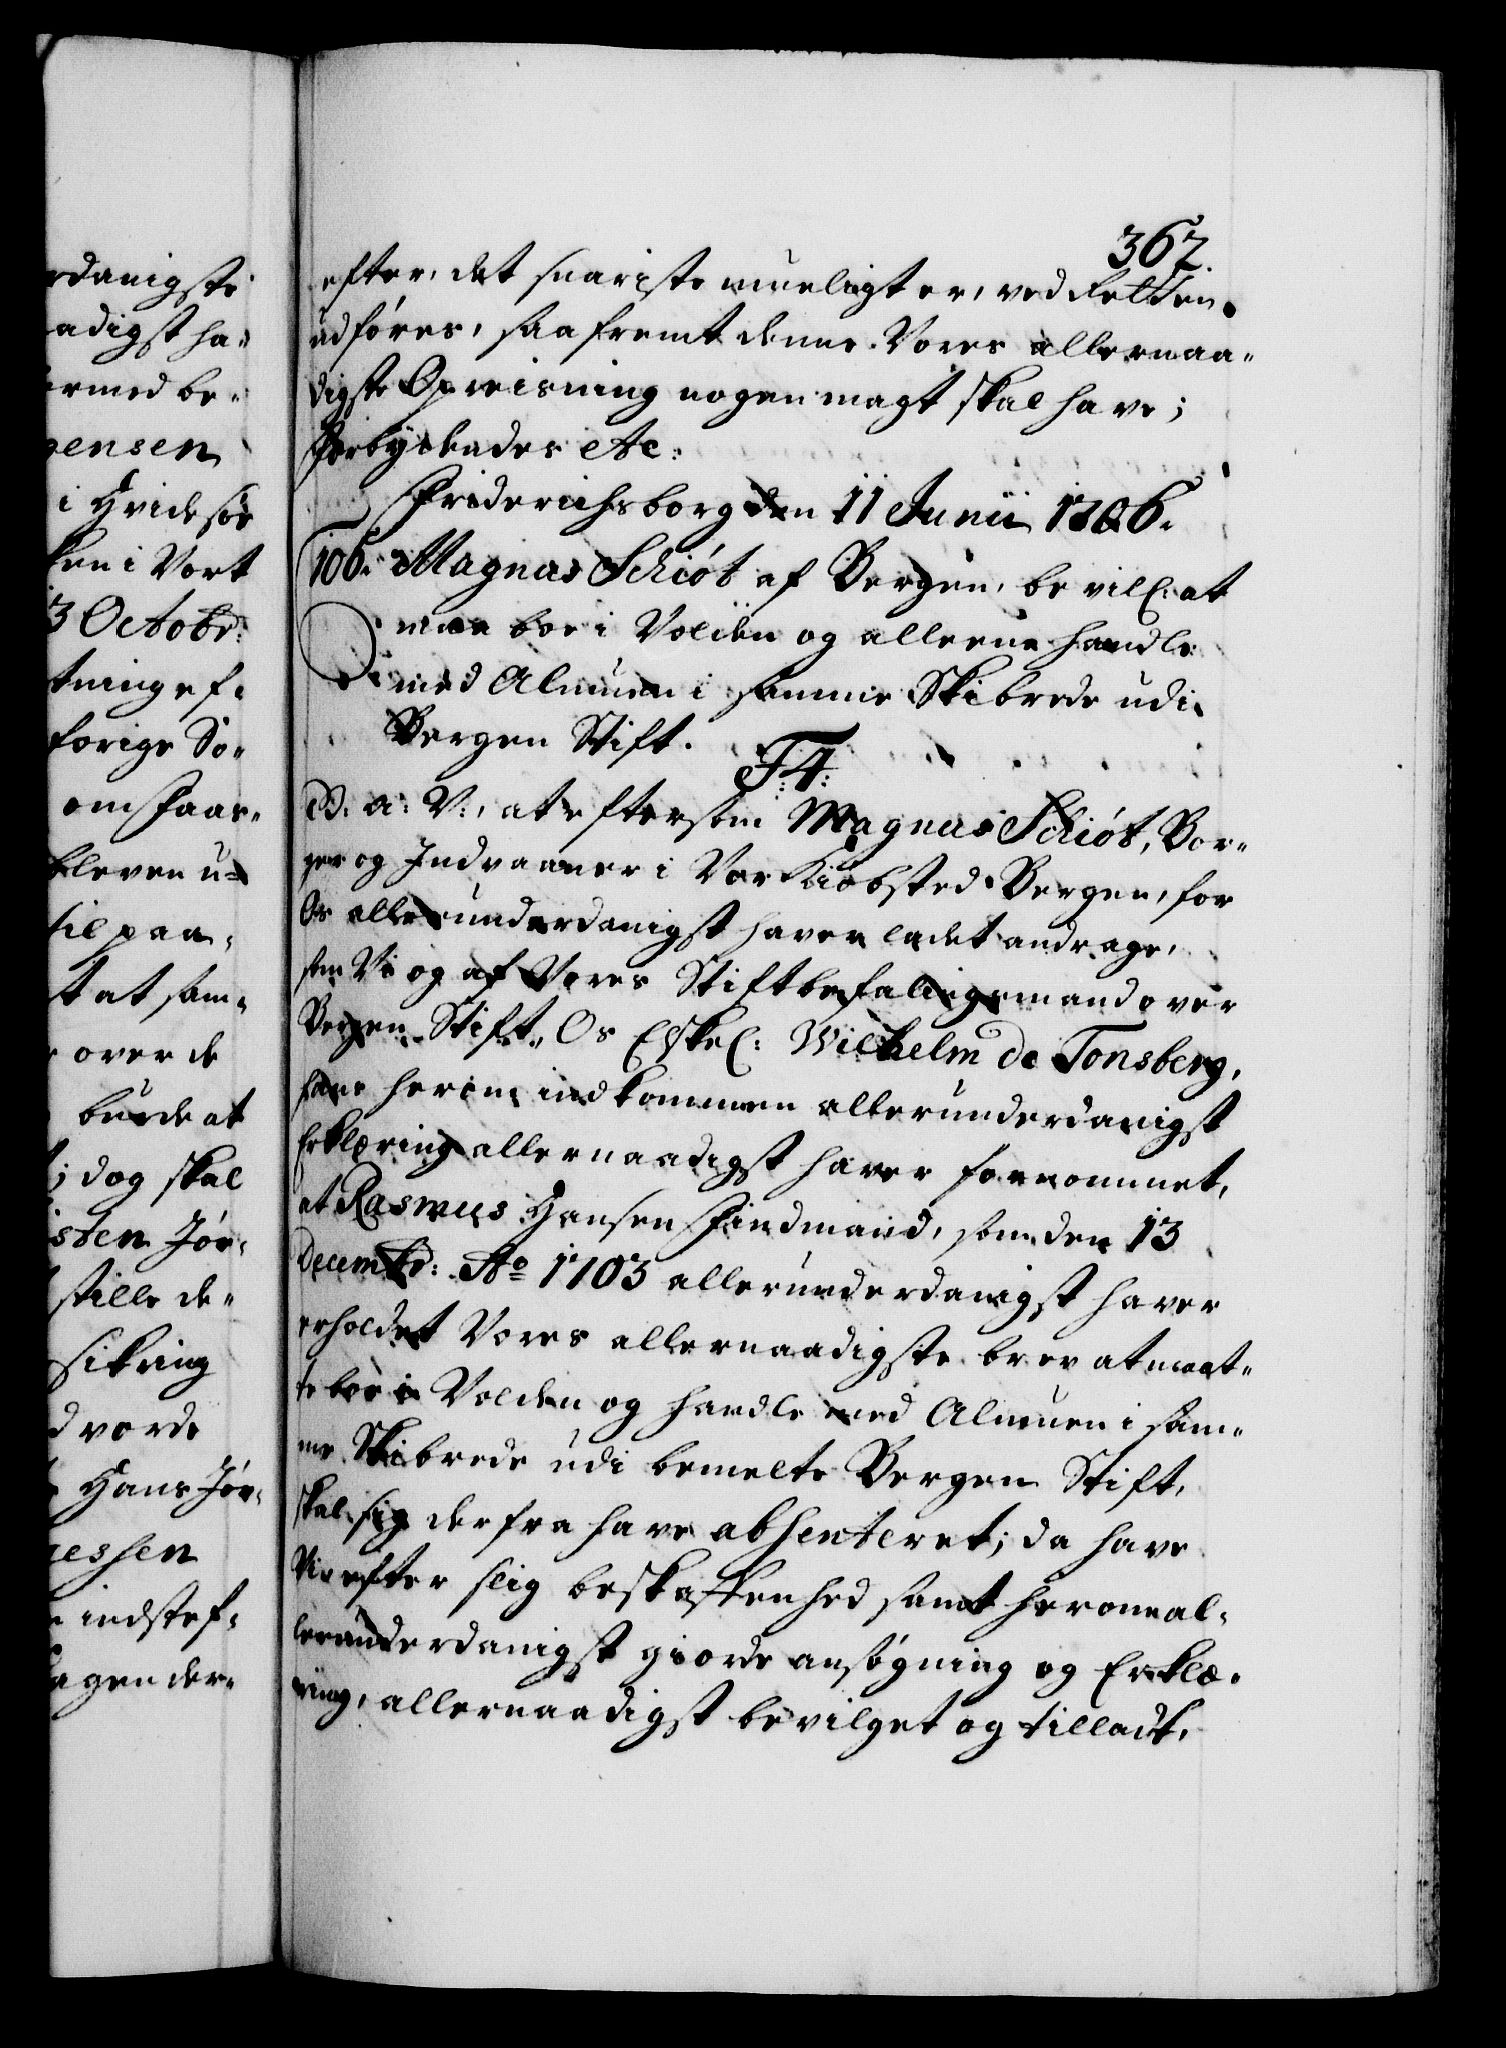 rdanigste
adigst ha-
ermed be-
gensen
i Hvidesöe
ken i Vort
13 Octobr:
tning ef-
forige So-
om Faar-
bleven u-
til paa-
st at sam-
over de
burde at
t; dog skal
isten Jör-
stille de-
sikring
d vorde
Hans Jör-
essen
indstef-
agen der-
367.
efter, det snariste mueligt er, ved Retten
udföres, saafremt denne Vores allernaa-
digste Opreisning nogen magt skal have;
Forbydendes etc:
Friderichsborg den 11 Junii 1706.
106. Magnus Schiöt af Bergen, bevilg: at
maa boe i Volden og alleene handle
med Almuen i samme Skibrede udi
Bergen Stift.
F: 4:
G: a: V:, at eftersom Magnus Schiöt, Bor-
ger og Indvaaner i Vor Kiöbsted Bergen, for
Os allerunderdanigst haver ladet andrage,
som Vi og af Vores Stiftbefalingsmand over
Bergen Stift, Os Elskel: Wilhelm de Tonsberg,
hans herom indkommen allerunderdanigst
Erklæring allernaadigst haver fornommet,
at Rasmus Hansen Findmand, som den 13
Decembr: Ao 1703 allerunderdanigst haver
erholdet Vores allernaadigste brev at maat-
te boe i Volden og handle med Almuen i sam-
me Skibrede udi bemelte Bergen Stift,
skal sig derfra have absenteret; da have
Vi efter slig beskaffenhed samt herom al-
lerunderdanigst giorde ansögning og Erklæ-
ring, allernaadigst bevilget og tilladt,